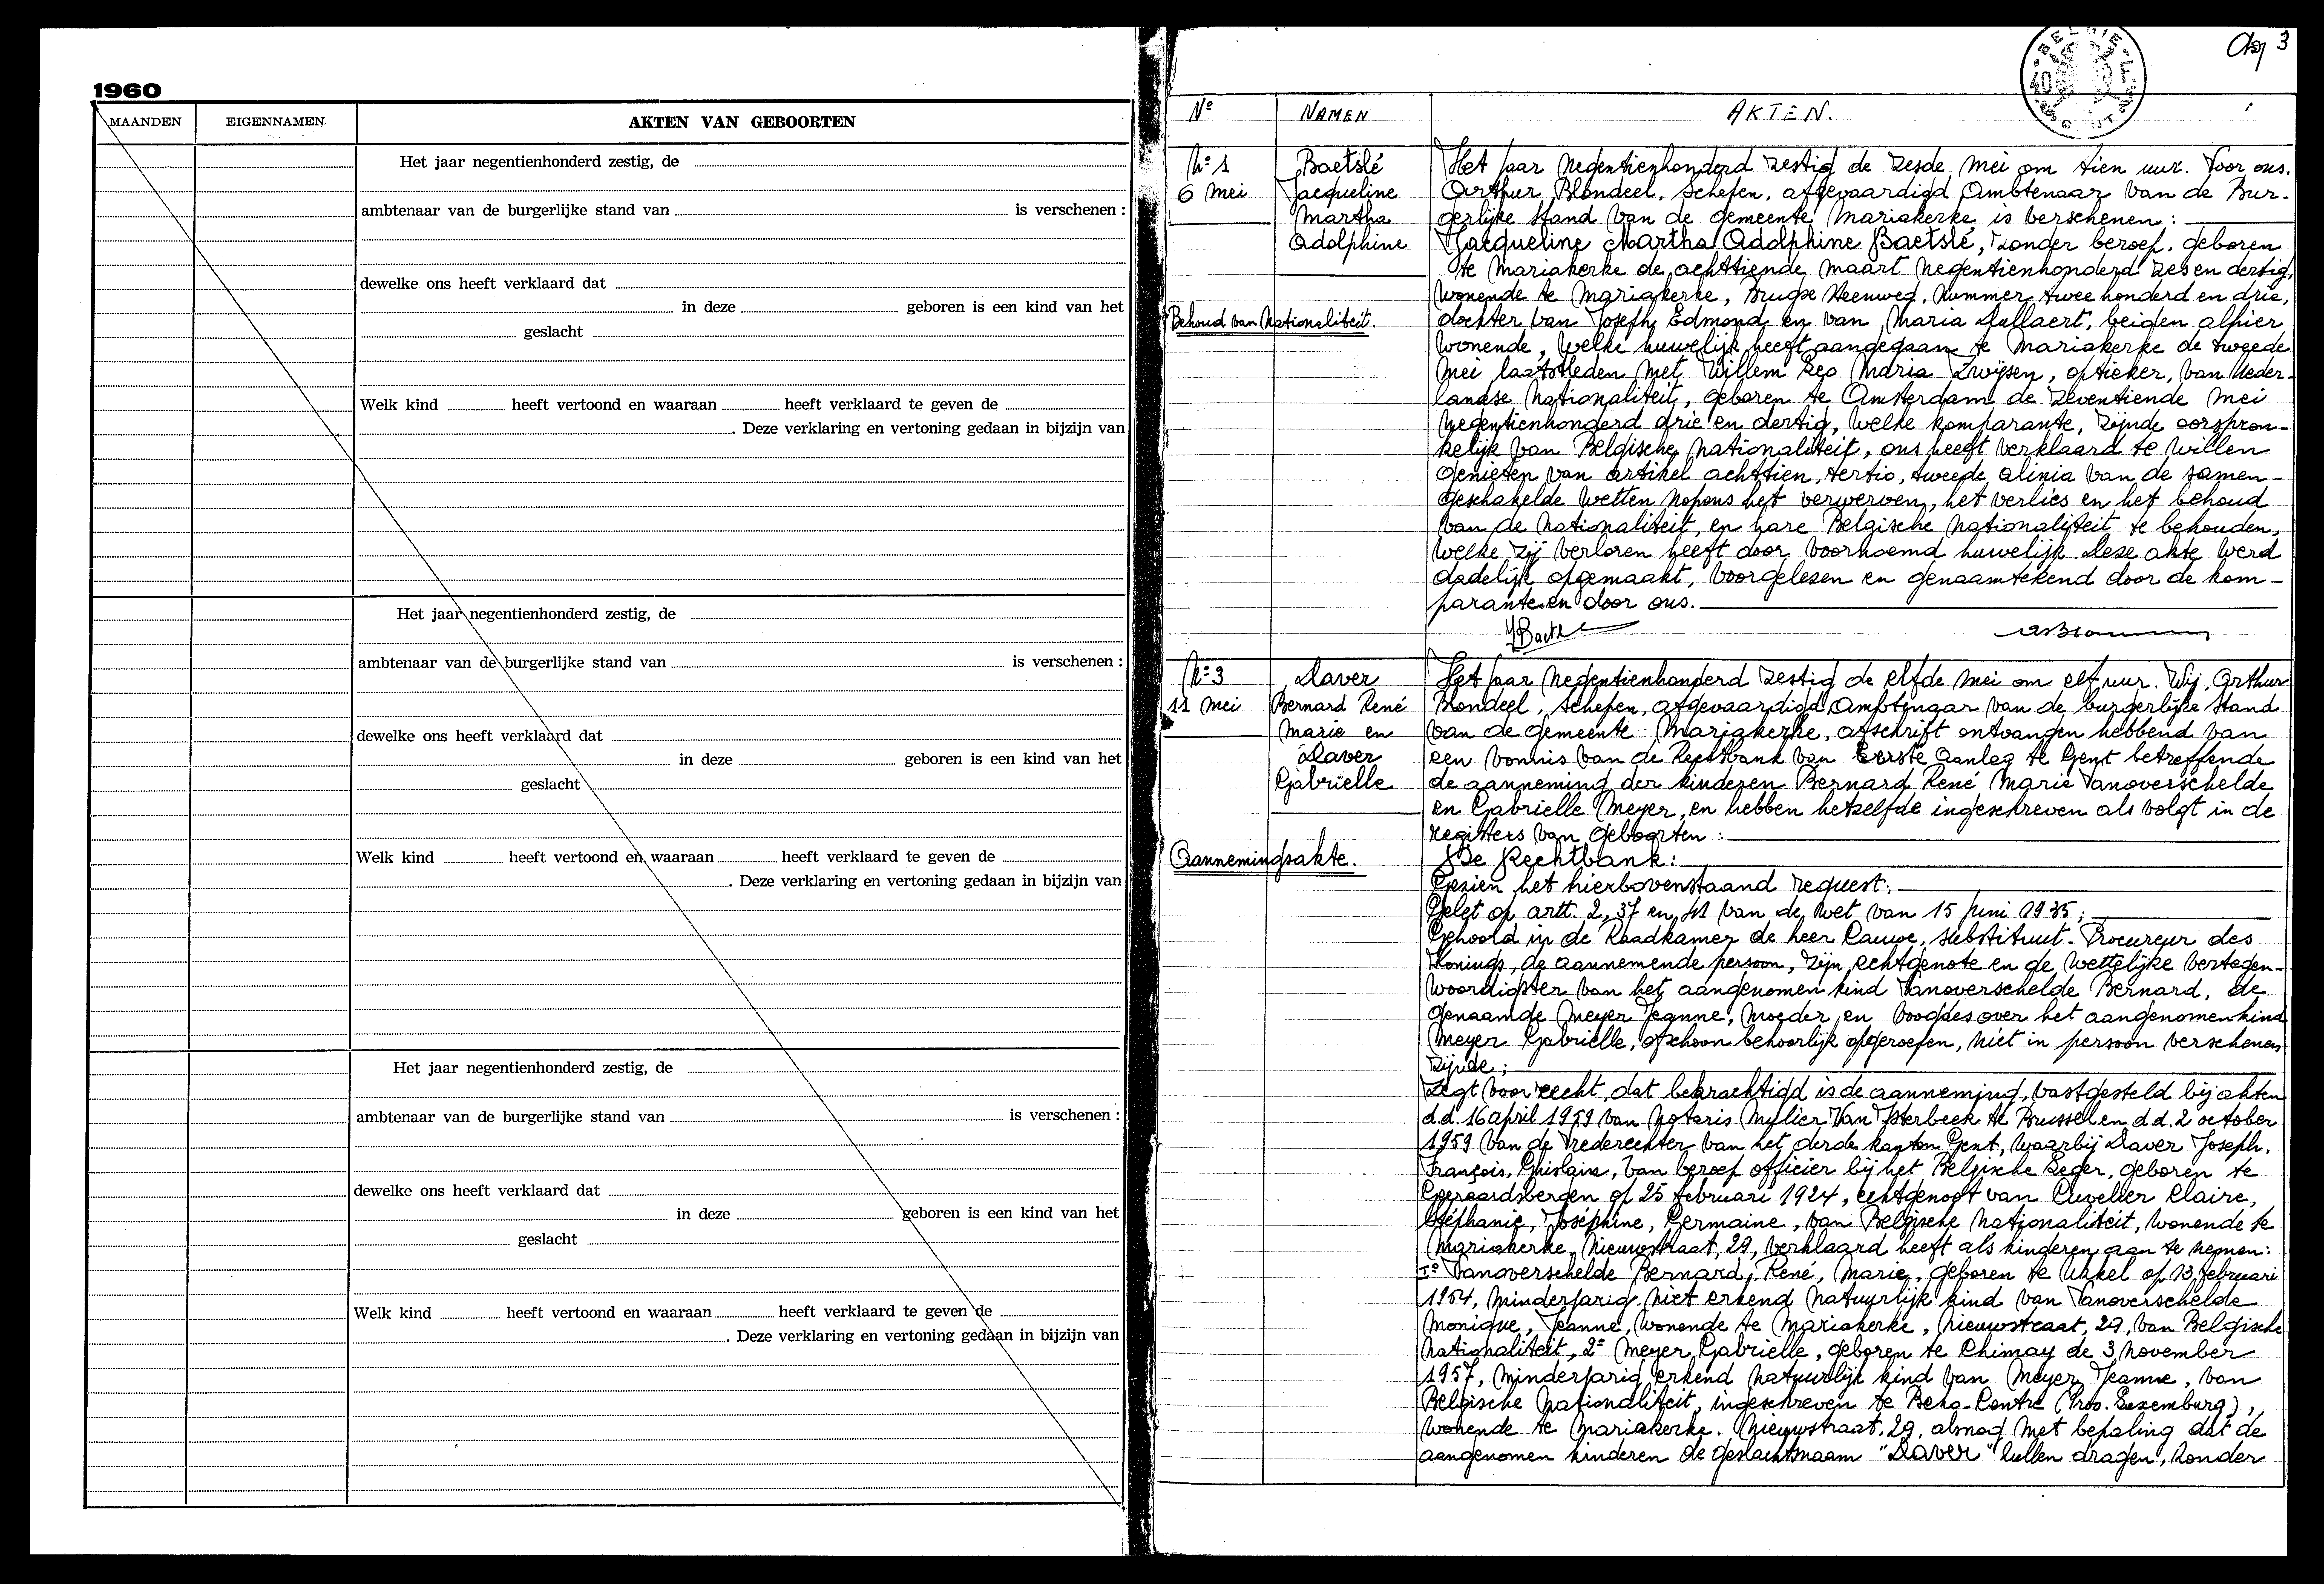 1960
MAANDEN EIGENNAMEN AKTEN VAN GEBOORTEN
Het jaar negentienhonderd zestig, de
ambtenaar van de burgerlijke stand van is verschenen :
dewelke ons heeft verklaard dat
in deze geboren is een kind van het
geslacht
Welk kind heeft vertoond en waaraan heeft verklaard te geven de
. Deze verklaring en vertoning gedaan in bijzijn van
Het jaar negentienhonderd zestig, de
ambtenaar van de burgerlijke stand van is verschenen :
dewelke ons heeft verklaard dat
in deze geboren is een kind van het
geslacht
Welk kind heeft vertoond en waaraan heeft verklaard te geven de
. Deze verklaring en vertoning gedaan in bijzijn van
Het jaar negentienhonderd zestig, de
ambtenaar van de burgerlijke stand van is verschenen :
dewelke ons heeft verklaard dat
in deze geboren is een kind van het
geslacht
Welk kind heeft vertoond en waaraan heeft verklaard te geven de
. Deze verklaring en vertoning gedaan in bijzijn van
3
Nº NAMEN AKTEN.
Nº 1
6 Mei
Baetslé
Jacqueline
Martha
Adolphine
Behoud van Nationaliteit.
Het jaar negentienhonderd zestig de zesde mei om tien uur. Voor ons.
Arthur Blondeel, schepen, afgevaardigd Ambtenaar van de Bur-
gerlijke stand van de gemeente Mariakerke is verschenen :
Jacqueline Martha Adolphine Baetslé, zonder beroep, geboren
te Mariakerke de achttiende maart negentienhonderd zes en dertig,
wonende te Mariakerke, Brugse Steenweg, nummer twee honderd en drie,
dochter van Joseph Edmond en van Maria Dullaert, beiden alhier
wonende, welke huwelijk heeft aangegaan te Mariakerke de tweede
mei laatstleden met Willem Leo Maria Zwijsen, optieker, van Neder-
landse nationaliteit, geboren te Amsterdam de zeventiende mei
negentienhonderd drie en dertig, welke komparante, zijnde oorspron-
kelijk van Belgische nationaliteit, ons heeft verklaard te willen
genieten van artikel achttien, tertio, tweede alinia van de samen-
geschakelde wetten nopens het verwerven, het verlies en het behoud
van de nationaliteit, en hare Belgische nationaliteit te behouden,
welke zij verloren heeft door voornoemd huwelijk. Deze akte werd
dadelijk opgemaakt, voorgelezen en genaamtekend door de kom-
parante en door ons.
Nº 3
11 Mei
Daver
Bernard René
Marie en
Daver
Gabrielle
Aannemingsakte.
Het jaar negentienhonderd zestig de elfde mei om elf uur. Wij, Arthur
Blondeel, schepen, afgevaardigd Ambtenaar van de burgerlijke stand
van de gemeente Mariakerke, afschrift ontvangen hebbend van
een vonnis van de Rechtbank van Eerste Aanleg te Gent betreffende
de aanneming der kinderen Bernard René Marie Vanoverschelde
en Gabrielle Meyer, en hebben hetzelfde ingeschreven als volgt in de
registers van geboorten :
De Rechtbank :
Gezien het hierbovenstaand request ;
Gelet op artt. 2, 37 en 41 van de wet van 15 juni 1935 ;
Gehoord in de Raadkamer de heer Cauwe, substituut-Procureur des
Konings, de aannemende persoon, zijn echtgenote en de wettelijke vertegen-
woordigster van het aangenomen kind Vanoverschelde Bernard, de
genaamde Meyer Jeanne, moeder en voogdes over het aangenomen kind
Meyer Gabrielle, ofschoon behoorlijk opgeroepen, niet in persoon verschenen
zijnde ;
Zegt voor recht, dat bekrachtigd is de aanneming, vastgesteld bij akten
d.d. 16 april 1959 van Notaris Mulier Van Isterbeek te Brussel en d.d. 2 october
1959 van de Vrederechter van het derde kanton Gent, waarbij Daver Joseph,
François, Ghislain, van beroep officier bij het Belgische Leger, geboren te
Geraardsbergen op 25 februari 1924, echtgenoot van Cuvelier Claire,
Stéphanie, Joséphine, Germaine, van Belgische nationaliteit, wonende te
Mariakerke, Nieuwstraat, 29, verklaard heeft als kinderen aan te nemen :
1º Vanoverschelde Bernard, René, Marie, geboren te Ukkel op 13 februari
1954, minderjarig niet erkend natuurlijk kind van Vanoverschelde
Monique, Jeanne, wonende te Mariakerke, Nieuwstraat, 29, van Belgische
nationaliteit, 2º Meyer Gabrielle, geboren te Chimay de 3 november
1957, minderjarig erkend natuurlijk kind van Meyer Jeanne, van
Belgische nationaliteit, ingeschreven te (Prov. Luxemburg),
wonende te Mariakerke, Nieuwstraat, 29, alsnog met bepaling dat de
aangenomen kinderen de geslachtsnaam "Daver" zullen dragen, zonder